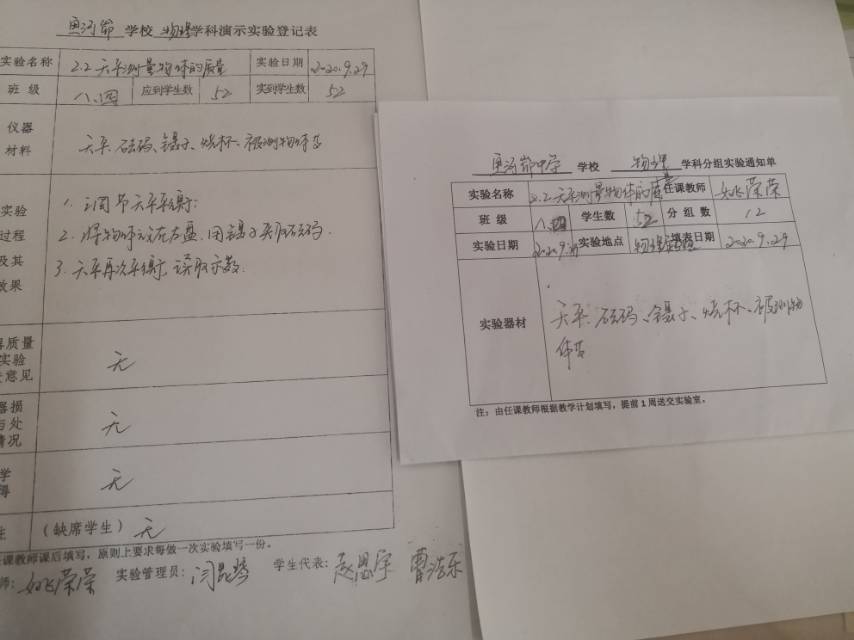 学校 物理学科演示实验登记表
实验名称 2.2天平测量物体的质量 实验日期 2020.9.29
班 级 八.四 应到学生数 52 实到学生数 52
仪器
材料
天平、砝码、镊子、烧杯、被测物体等
实验
过程
及其
效果
1. 调节天平平衡;
2. 将物体放在左盘,用镊子夹取砝码.
3. 天平再次平衡,读取示数.
质量
实验
意见
无
器损
与处
情况
无
学
得
无
生 (缺席学生) 无
课教师课后填写,原则上要求每做一次实验填写一份。
师: 姚荣荣 实验管理员: 闫 学生代表: 赵思宇 曹浩乐
中学 学校 物理 学科分组实验通知单
实验名称 2.2天平测量物体的质量 任课教师 姚荣荣
班 级 八.四 学生数 52 分 组 数 12
实验日期 2020.9. 实验地点 物理 填表日期 2020.9.29
实验器材
天平、砝码、镊子、烧杯、被测物
体等
注:由任课教师根据教学计划填写,提前1周送交实验室。